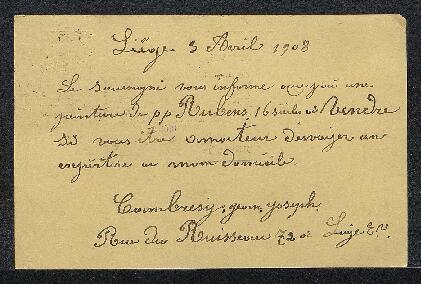 Liége 3 Avril 1908
Le sousigné vous informe que j'ai une
peinture de pp Rubens, 16 siècle à Vendre
Si vous être amateur d'envoyer un
enquêtre a mon domicile.
Combresy, jean, joseph.
Rue du Ruisseau 72 à Liege E.V.